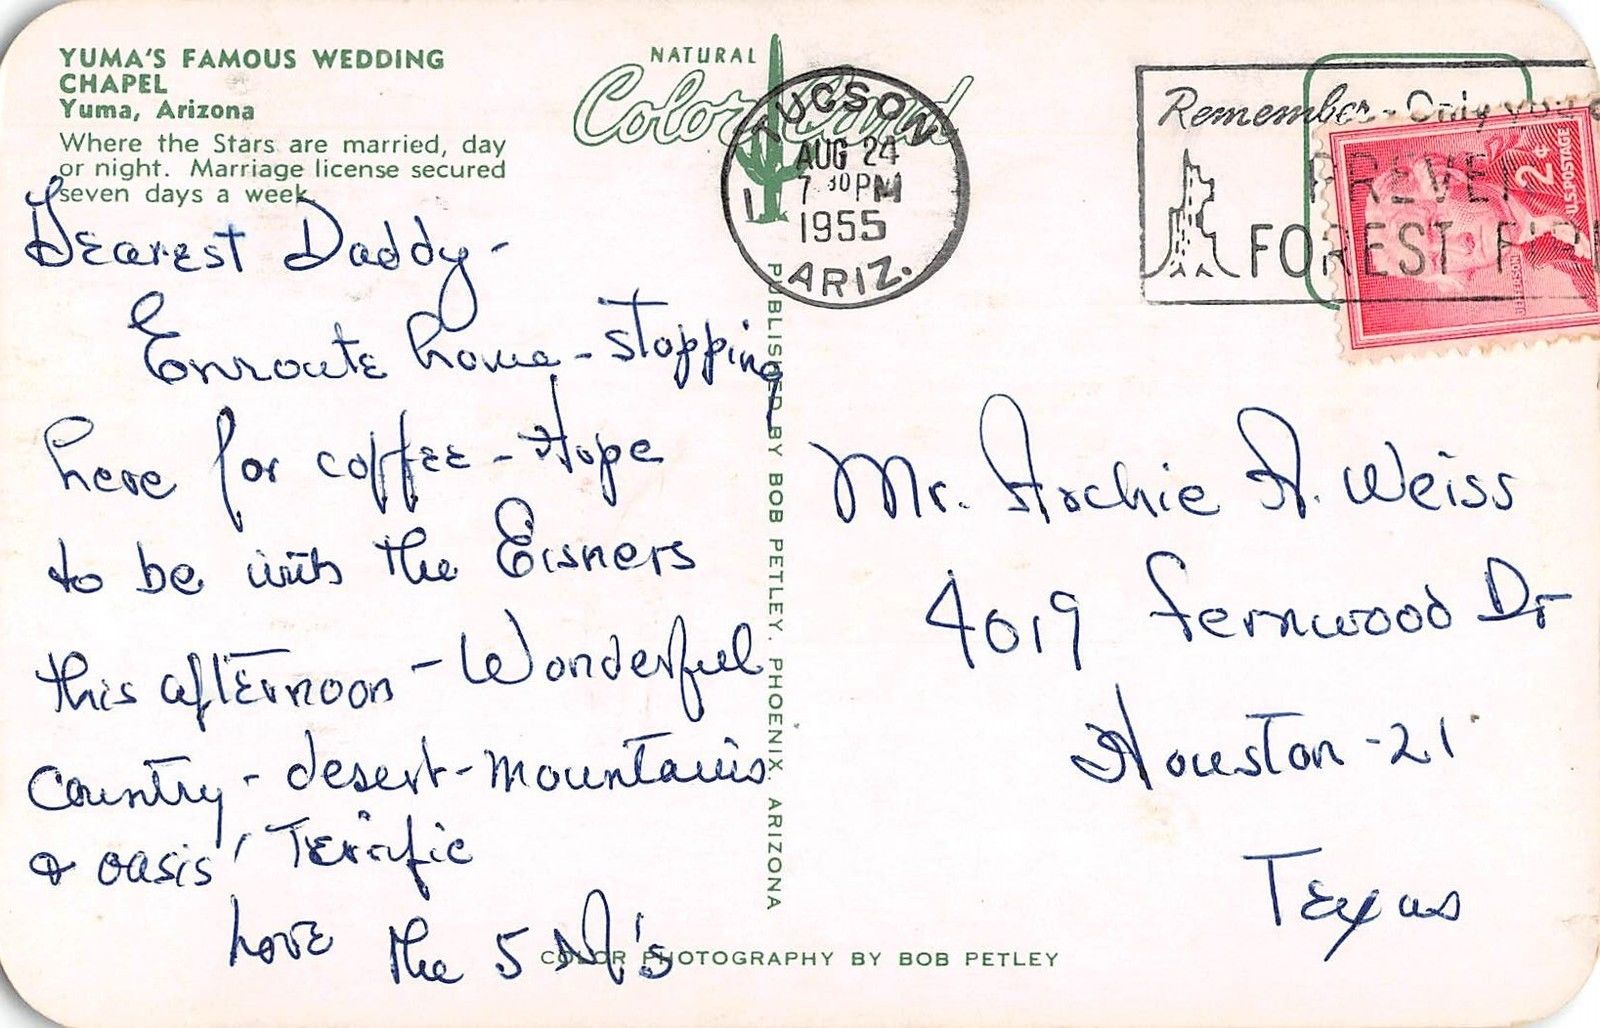 YUMA'S FAMOUS WEDDING
CHAPEL
Yuma, Arizona
Where the Stars are married, day
or night. Marriage license secured
seven days a week
Dearest Daddy -
Enroute home - stopping
here for coffee - Hope
to be with the Eisners
this afternoon - Wonderful
Country - desert - mountains
& oasis' Terrific
Love the 5 M's
NATURAL
Color Card
TUCSON
AUG 24
7 30 PM
1955
1
ARIZ.
Remember - Only you
PREVEN
FOREST FIR
2¢
U.S. POSTAGE
JEFFERSON
PUBLISHED BY BOB PETLEY, PHOENIX, ARIZONA
Mr. Archie A. Weiss
4019 Fernwood Dr
Houston - 21
Texas
COLOR PHOTOGRAPHY BY BOB PETLEY